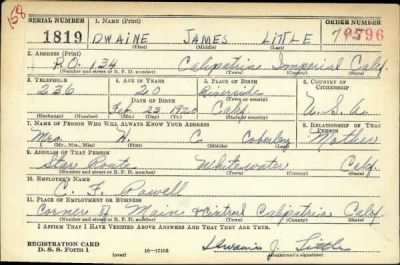 158
SERIAL NUMBER 1. NAME (Print) ORDER NUMBER
1819 DWAINE JAMES LITTLE
(First) (Middle) (Last)
2. ADDRESS (Print)
P.O. 134 Calipatria Imperial Calif.
(Number and street or R. F. D. number) (Town) (County) (State)
3. TELEPHONE 4. AGE IN YEARS 5. PLACE OF BIRTH 6. COUNTRY OF CITIZENSHIP
236 20 Riverside
DATE OF BIRTH (Town or county)
Feb. 23 1920 Calif. U.S.A.
(Exchange) (Number) (Mo.) (Day) (Yr.) (State or country)
7. NAME OF PERSON WHO WILL ALWAYS KNOW YOUR ADDRESS 8. RELATIONSHIP OF THAT PERSON
Mrs. C. Mother
(Mr., Mrs., Miss) (First) (Middle) (Last)
9. ADDRESS OF THAT PERSON
Star Route Whitewater Calif.
(Number and street or R. F. D. number) (Town) (County) (State)
10. EMPLOYER'S NAME
C. F. Powell
11. PLACE OF EMPLOYMENT OR BUSINESS
Corner of Main Calipatria Calif.
(Number and street or R. F. D. number) (Town) (County) (State)
I AFFIRM THAT I HAVE VERIFIED ABOVE ANSWERS AND THAT THEY ARE TRUE.
REGISTRATION CARD
D. S. S. Form 1 (over) Dwaine J. Little
(Registrant's signature)